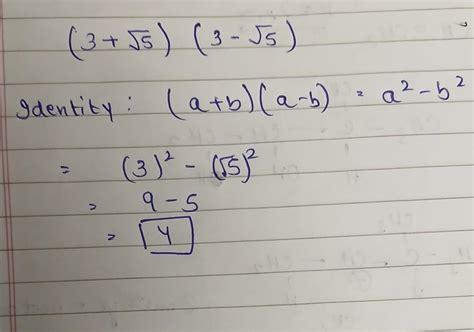 (3 + √5) (3 - √5)
Identity : (a+b)(a-b) = a² - b²
= (3)² - (√5)²
= 9 - 5
= 4